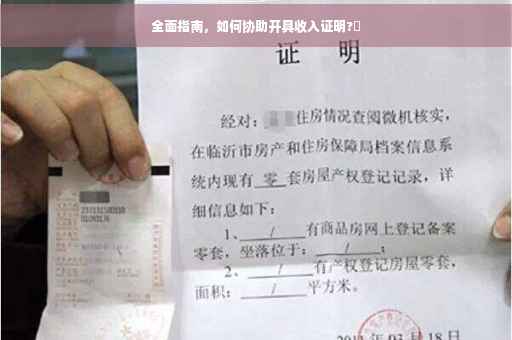 全面指南，如何协助开具收入证明?
证 明
经对：住房情况查阅微机核实，
在临沂市房产和住房保障局档案信息系
统内现有 零 套房屋产权登记记录，详
细信息如下：
1、 / 有商品房网上登记备案
零套，坐落位于： / ；
2、 / 有产权登记房屋零套，
面积： / 平方米。
月 18 日